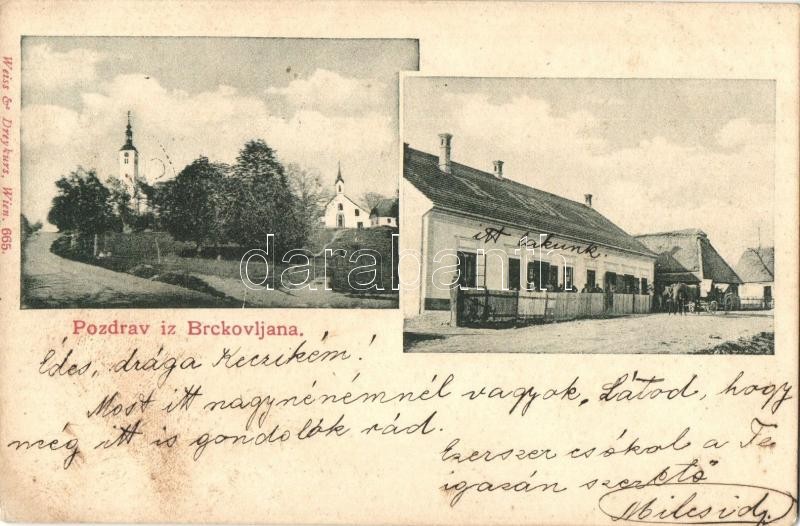 Weiss & Dreykurs, Wien. 665.
itt lakunk
darabanth
Pozdrav iz Brckovljana.
Édes, drága Keczikém!
Most itt nagynénémnél vagyok. Látod, hogy
még itt is gondolok rád.
Ezerszer csókol a Te
igazán szerető